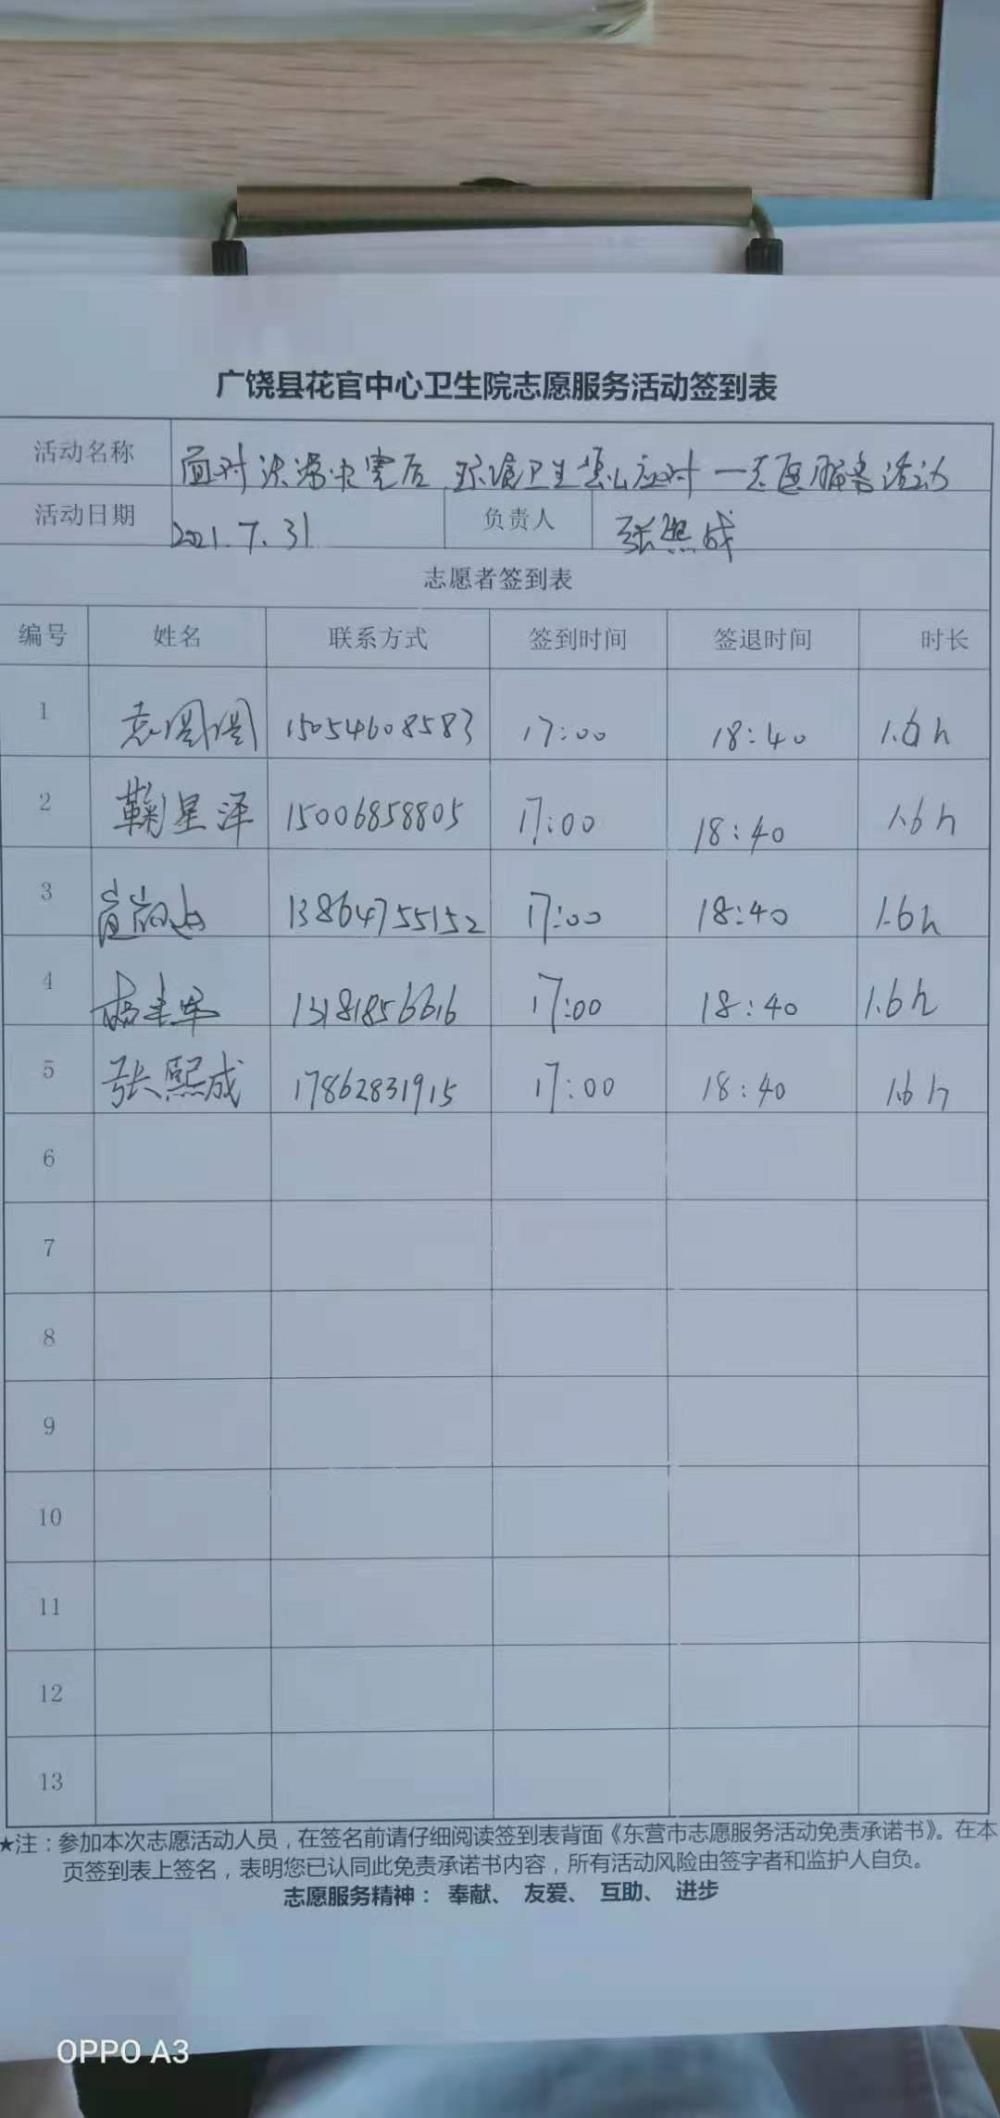 广饶县花官中心卫生院志愿服务活动签到表
活动名称 面对洪涝灾害后,环境卫生怎么应对—志愿服务活动
活动日期 2021.7.31 负责人 张熙成
志愿者签到表
编号 姓名 联系方式 签到时间 签退时间 时长
1 袁圆圆 15054608583 17:00 18:40 1.6h
2 鞠星泽 15006858805 17:00 18:40 1.6h
3 13864755152 17:00 18:40 1.6h
4 13181856616 17:00 18:40 1.6h
5 张熙成 17862831915 17:00 18:40 1.6h
6
7
8
9
10
11
12
13
★注：参加本次志愿活动人员，在签名前请仔细阅读签到表背面《东营市志愿服务活动免责承诺书》。在本
页签到表上签名，表明您已认同此免责承诺书内容，所有活动风险由签字者和监护人自负。
志愿服务精神： 奉献、 友爱、 互助、 进步
OPPO A3